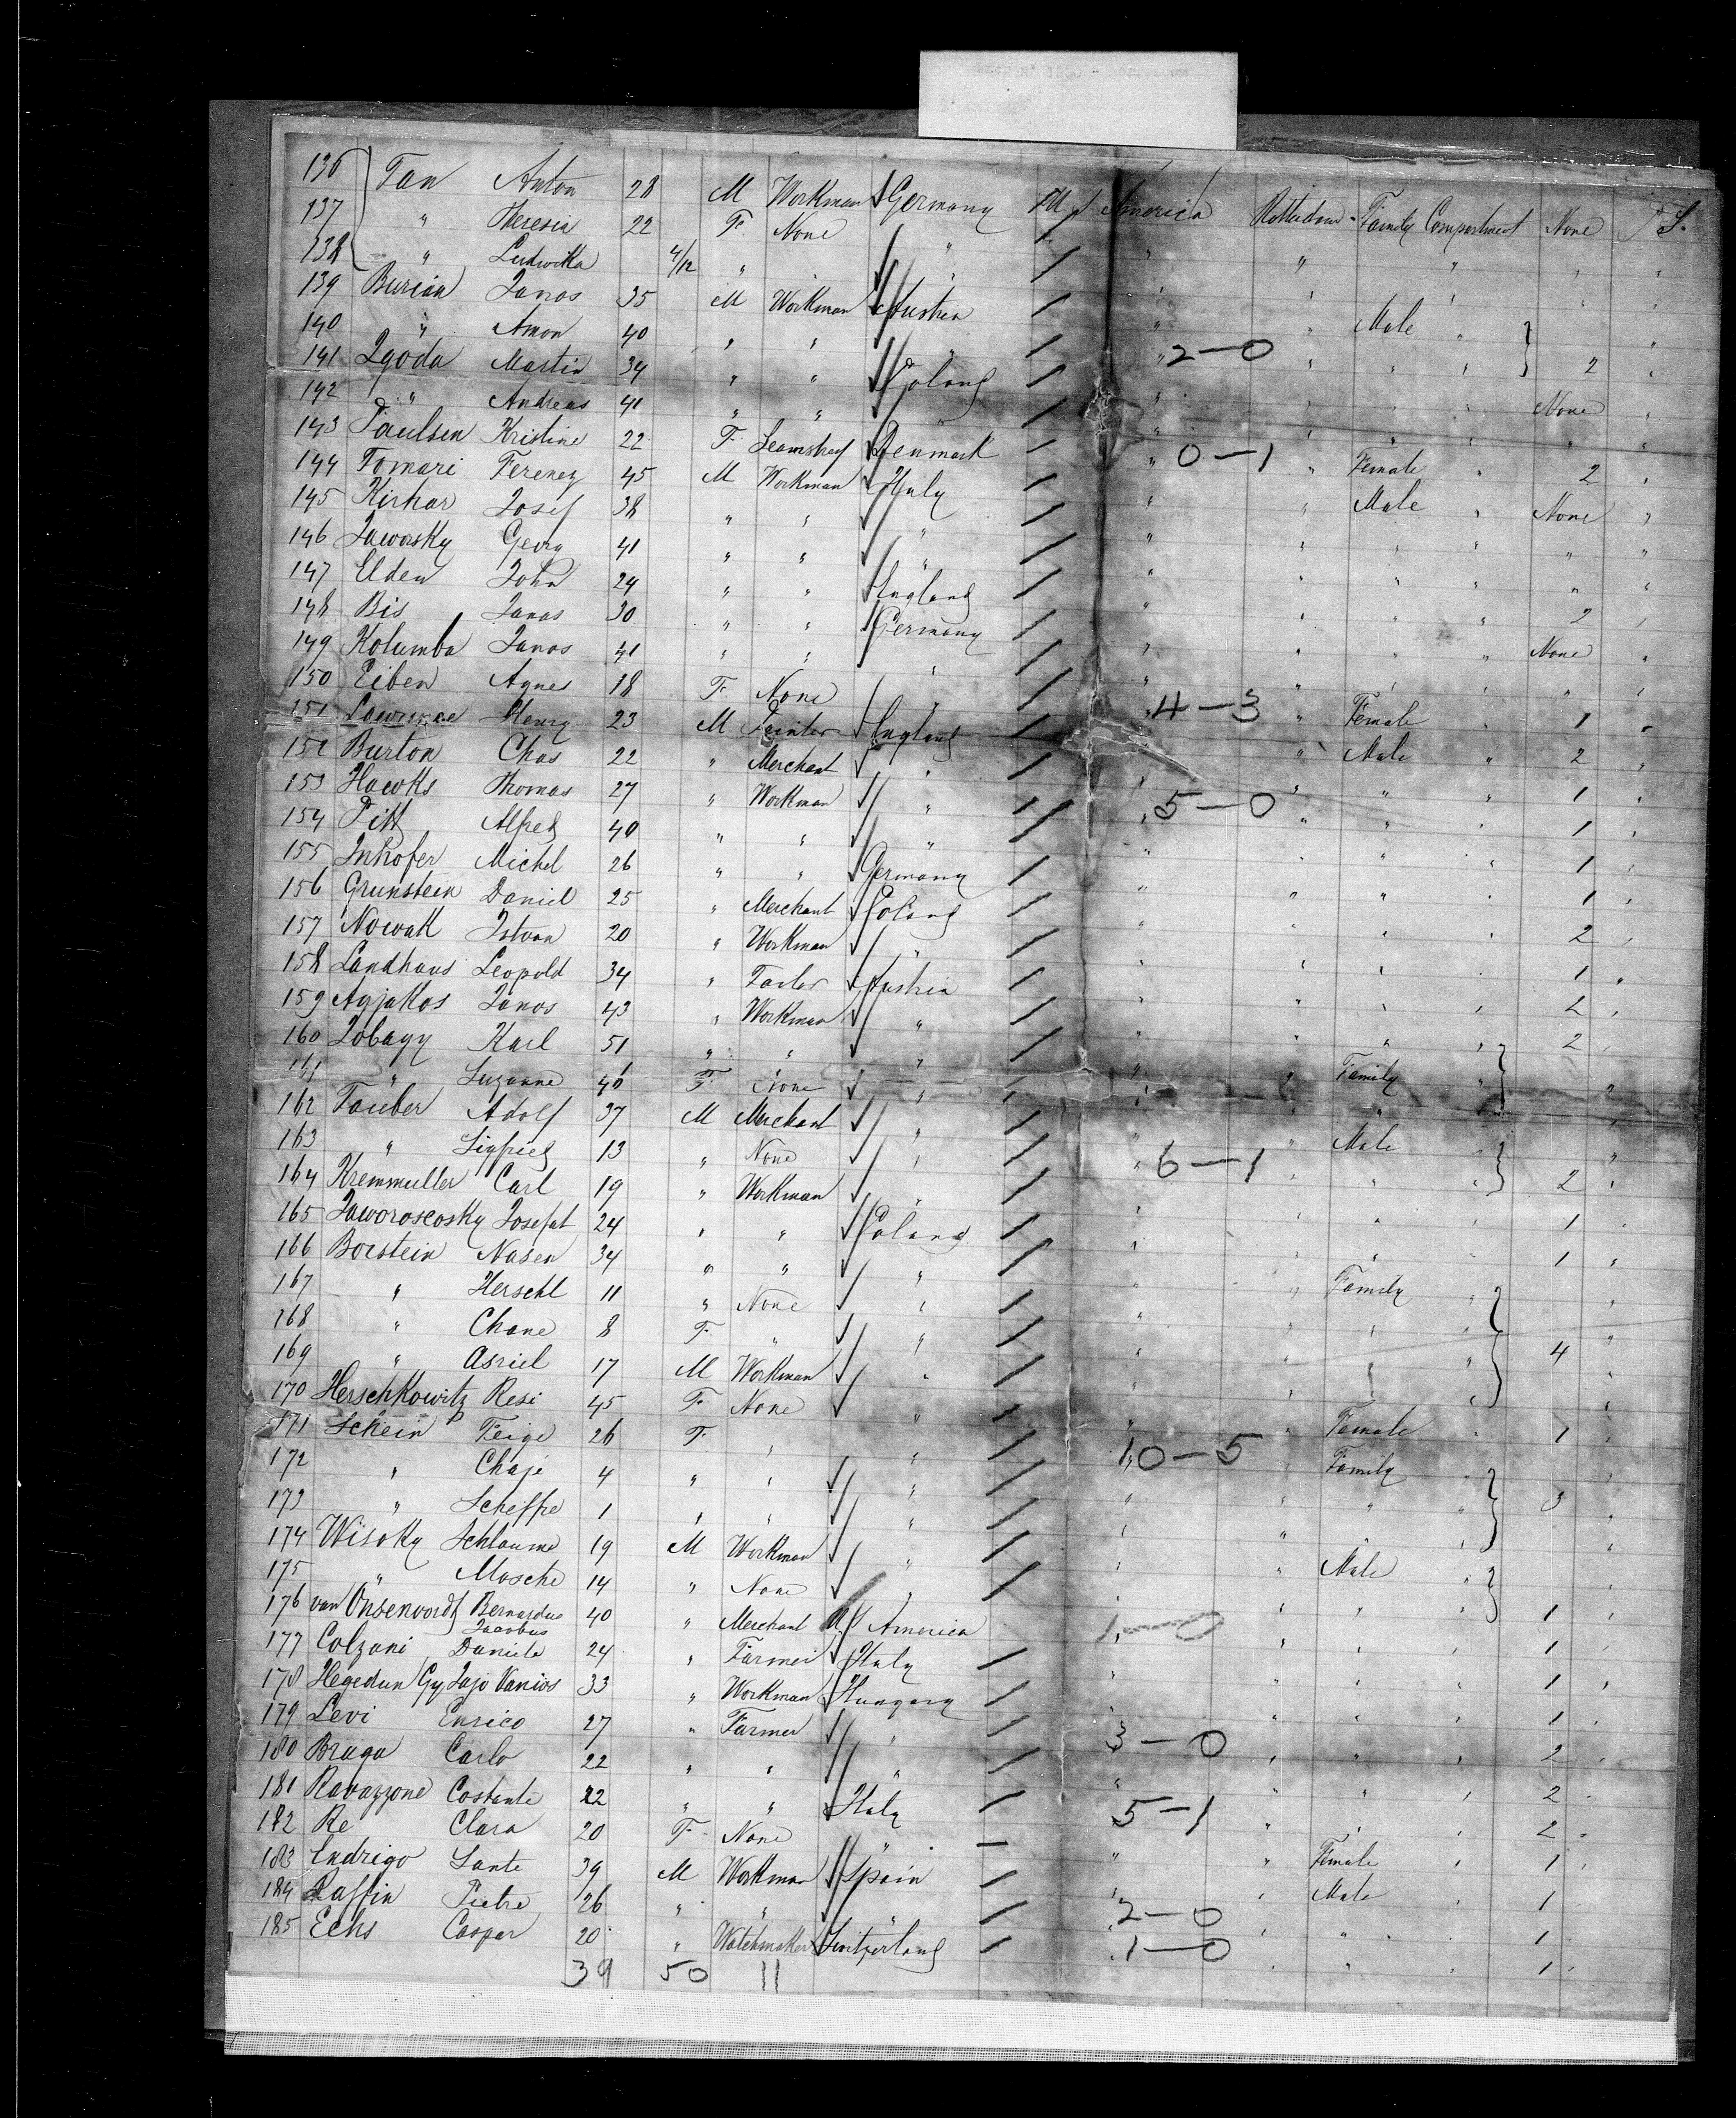 136 Tan Anton 28 M Workman Germany U.S. America Rotterdam Family Compartment None S.
137 " Theresia 22 F. None " " " "
138 " Ludwika 4/12 " " " " " "
139 Burian Janos 35 M Workman Austria " " Male "
140 " Amon 40 " " " 2-0 " " " 2 "
141 Zgoda Martin 34 " " Poland " " " None "
142 " Andreas 41 " " " " " " " "
143 Paulsen Kristine 22 F. Seamstress Denmark " 0-1 " Female " 2 "
144 Tomari Ferenez 45 M Workman Italy " " Male " None "
145 Kirhar Josef 38 " " " " " " " " "
146 Jaworsky Georg 41 " " " " " " " " "
147 Elden John 24 " " England " " " " 2 "
148 Bis Janos 30 " " Germany " " " " None "
149 Kolumba Janos 41 " " " " " " " " "
150 Eiben Agnes 18 F. None " " 4-3 " Female " 1 "
151 Lawrence Henry 23 M Painter England " Male " 2 "
152 Burton Chas 22 " Merchant " " " " " 1 "
153 Hawks Thomas 27 " Workman " " 5-0 " " 1 "
154 Pitt Alfred 40 " " " " " " " 1 "
155 Inhofer Michel 26 " " Germany " " " " 1 "
156 Grunstein Daniel 25 " Merchant Poland " " " " 2 "
157 Nowak Istvan 20 " Workman " " " " " 1 "
158 Landhaus Leopold 34 " Tailor Austria " " " " 2 "
159 Agjakos Janos 43 " Workman " " " " " 2 "
160 Zobagy Karl 51 " " " " " Family " "
161 " Suzanne 40 F. None " " " " "
162 Tauber Adolf 37 M Merchant " " " Male " "
163 " Sigfried 13 " None " " 6-1 " " " 2 "
164 Kremmuller Carl 19 " Workman " " " " 1 "
165 Jaworoscosky Josefat 24 " " Poland " " " 1 "
166 Borstein Nasen 34 " " " " " Family " "
167 " Herschl 11 " None " " " " " "
168 " Chane 8 F. " " " " 4 "
169 " Asriel 17 M Workman " " " " "
170 Herschkowitz Resi 45 F. None " " Female " 1 "
171 Schein Feige 26 F. " " 10-5 Family "
172 " Chaje 4 " " " " " " " 3
173 " Scheffre 1 " " " " " " "
174 Wisoky Schlaume 19 M Workman " " " Male " "
175 " Mosche 14 " None " " " " " 1 "
176 van Onsenvoordt Bernardus Jacobus 40 " Merchant U.S. America 1-0 " " " 1 "
177 Colzani Daniele 24 " Farmer Italy " " " " 1 "
178 Hegedun Gy Jajo Vanios 33 " Workman Hungary " " " " 1 "
179 Levi Enrico 27 " Farmer " " 3-0 " " " 2 "
180 Braga Carlo 22 " " " " " " " 2 "
181 Ravazzone Costante 22 " " Italy 5-1 " " " 2 "
182 Re Clara 20 F. None " " " Female " 1 "
183 Endrigo Sante 39 M Workman Spain " " Male " 1 "
184 Raffin Pietro 26 " " " 2-0 " " " 1 "
185 Echs Caspar 20 " Watchmaker Switzerland 1-0 " " " 1 "
39 50 11